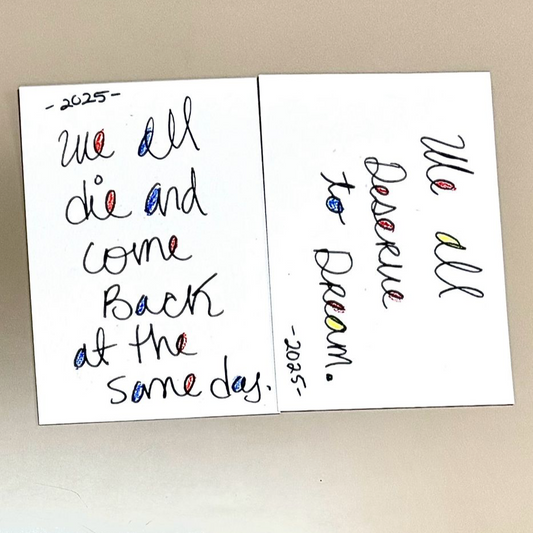 -2025-
We all
die and
come
Back
at the
same day.
We all
Deserve
to Dream.
-2025-